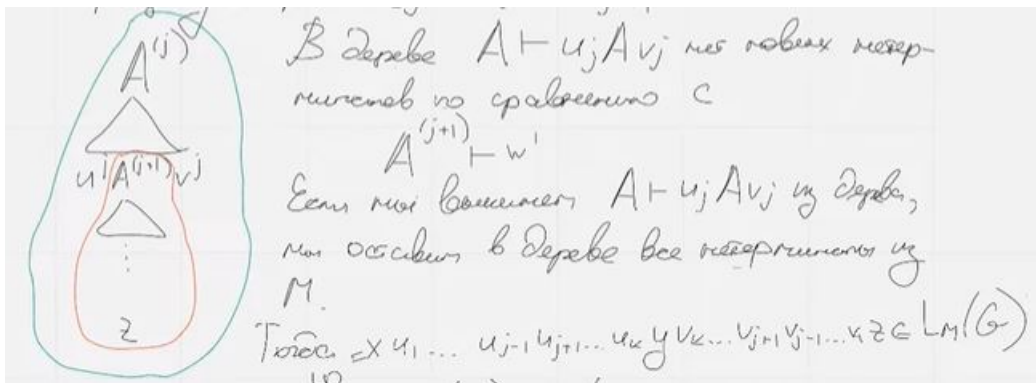 A^{(j)}
u^j A^{(j+1)} v^j
⋮
z
В дереве A ⊢ u_j A v_j нет новых нетер-
миналов по сравнению с
A^{(j+1)} ⊢ w'
Если мы вынимем A ⊢ u_j A v_j из дерева,
мы оставим в дереве все нетерминалы из
M.
Тогда = x u_1 ... u_{j-1} u_{j+1} ... u_k y v_k ... v_{j+1} v_{j-1} ... v_1 z ∈ L_M(G)